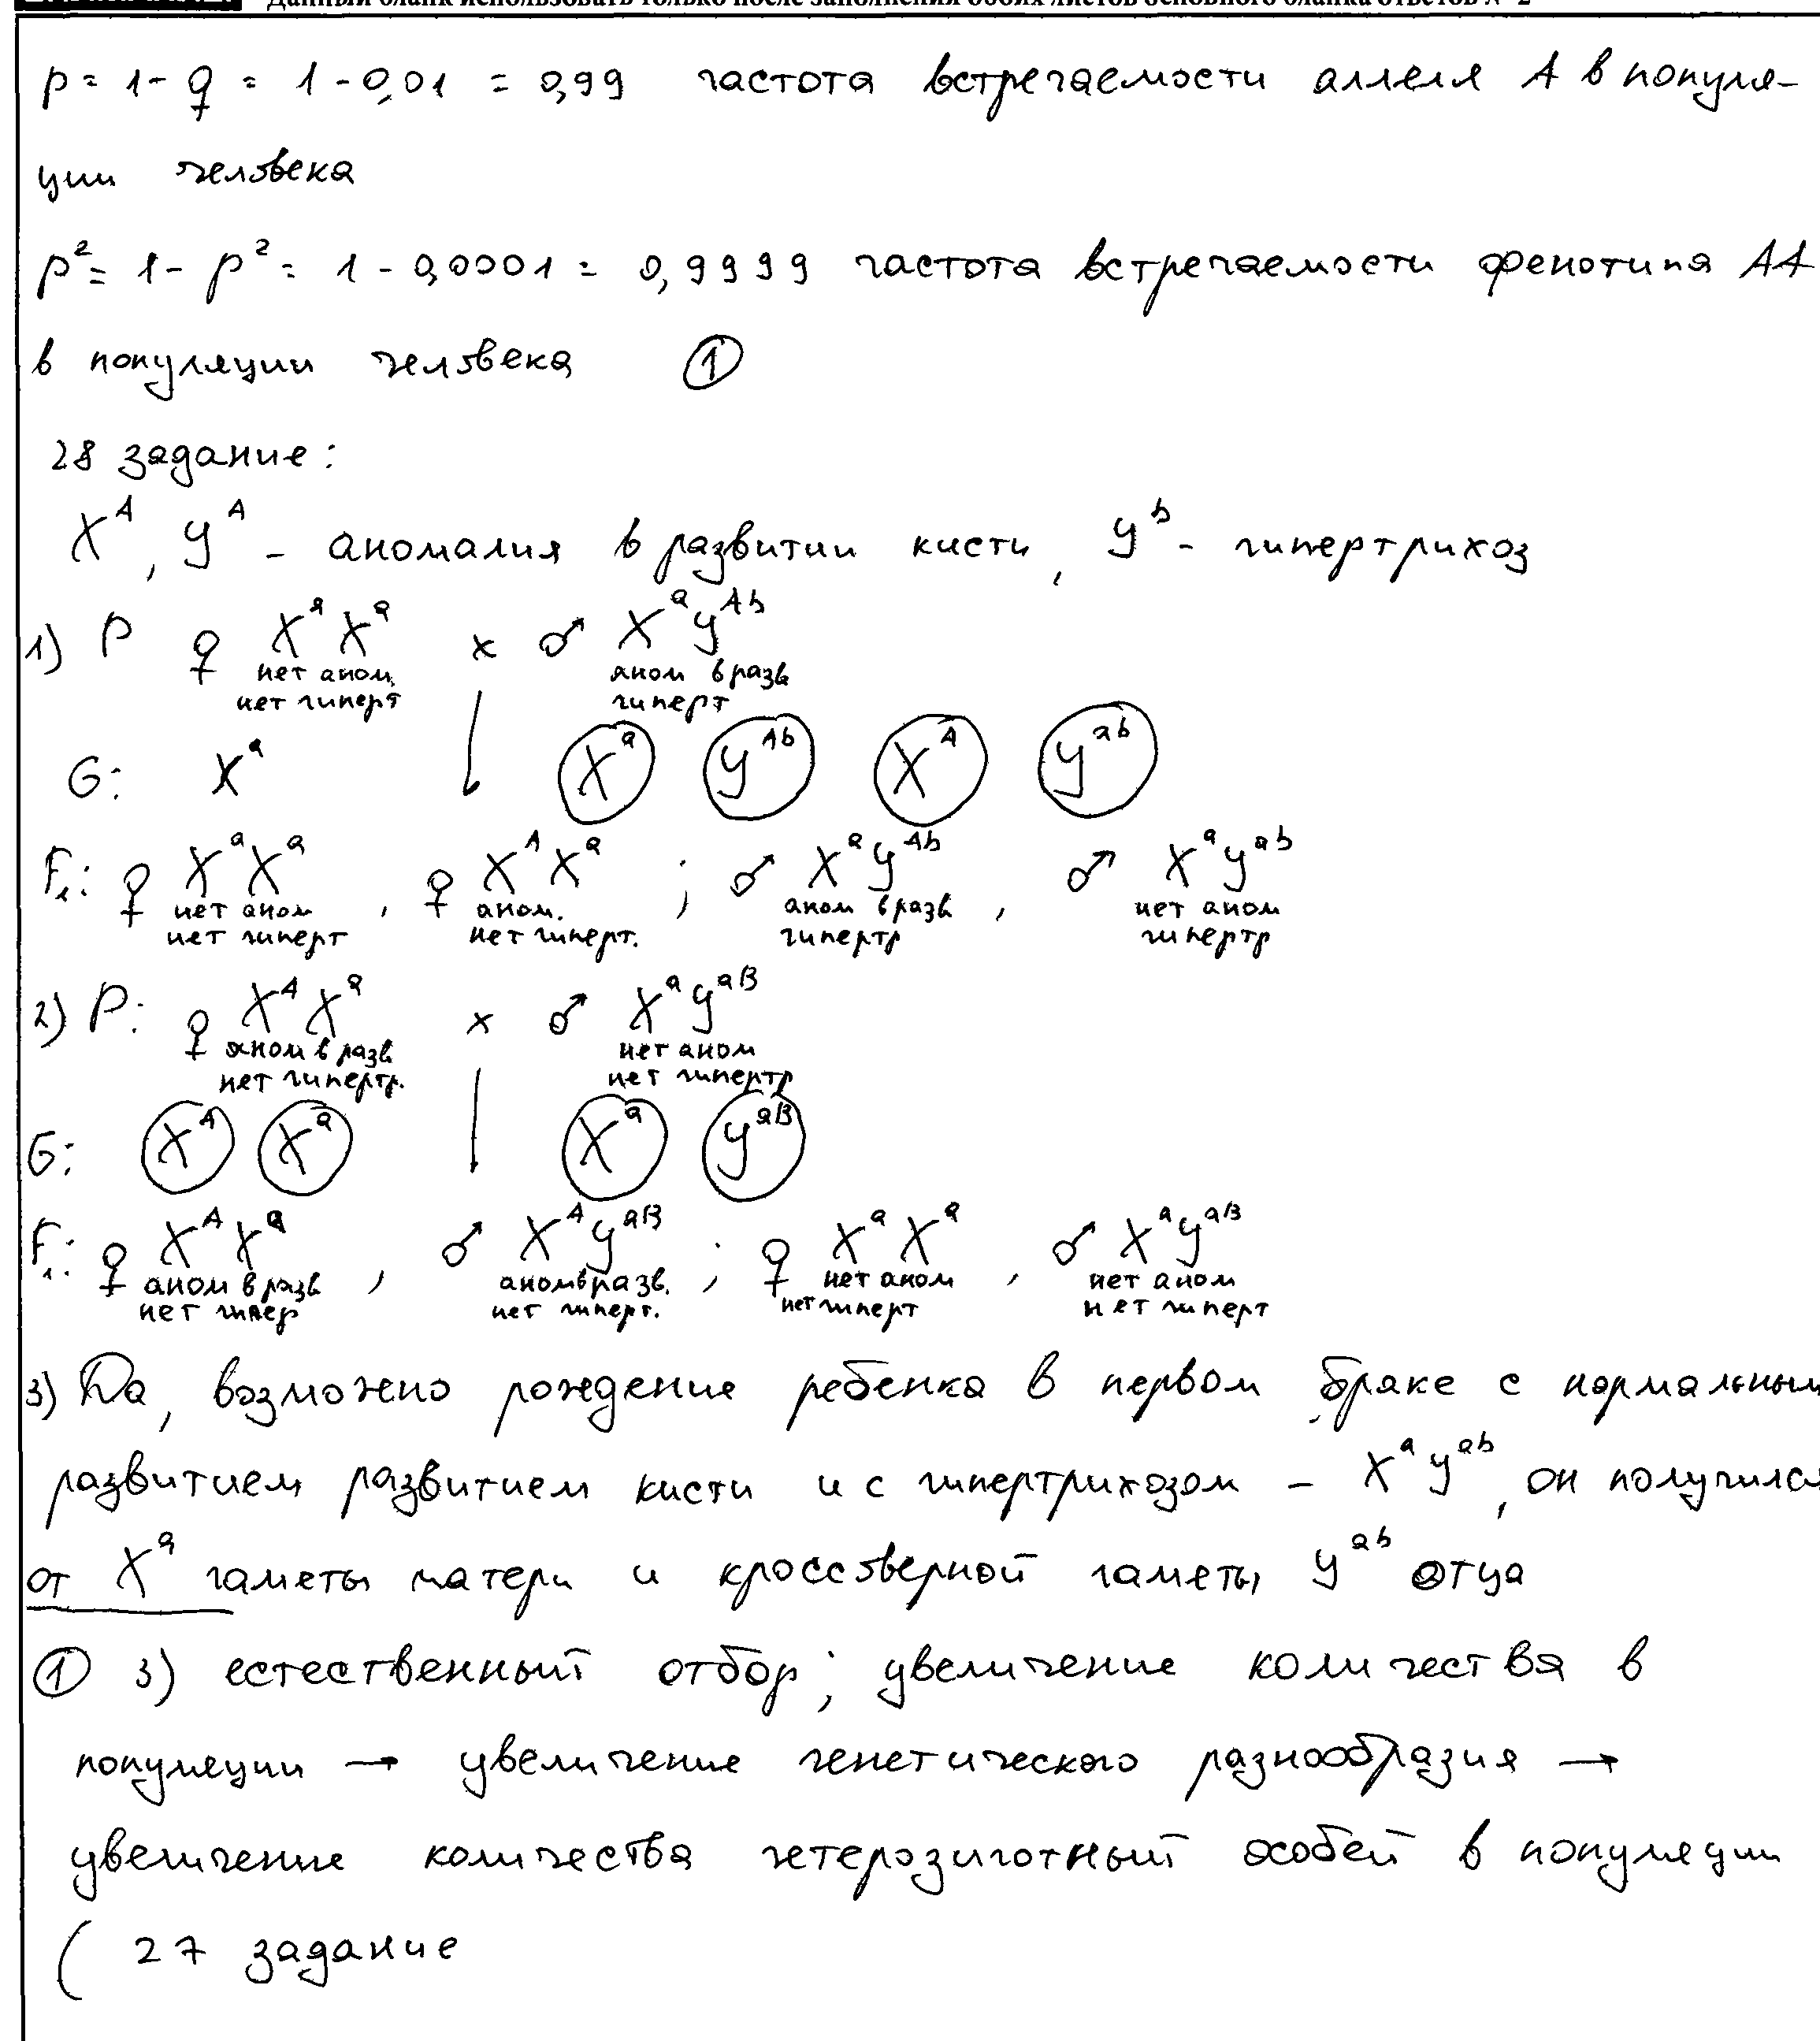 Данный бланк использовать только после заполнения обоих листов основного бланка ответов № 2
p = 1 - q = 1 - 0,01 = 0,99 частота встречаемости аллеля A в популя-
ции человека
p² = 1 - p² = 1 - 0,0001 = 0,9999 частота встречаемости фенотипа AA
в популяции человека ①
28 задание:
Xᴬ, Yᴬ - аномалия в развитии кисти, Yᵇ - гипертрихоз
1) P ♀ XᵃXᵃ x ♂ XᵃYᴬᵇ
нет аном. аном в разв
нет гиперт гиперт
G: Xᵃ Xᵃ Yᴬᵇ Xᴬ Yᵃᵇ
F₁: ♀ XᵃXᵃ, ♀ XᴬXᵃ; ♂ XᵃYᴬᵇ, ♂ XᵃYᵃᵇ
нет аном аном. аном в разв нет аном
нет гиперт нет гиперт. гипертр гипертр
2) P: ♀ XᴬXᵃ x ♂ XᵃYᵃᴮ
аном в разв нет аном
нет гипертр. нет гипертр
G: Xᴬ Xᵃ Xᵃ Yᵃᴮ
F₁: ♀ XᴬXᵃ, ♂ XᴬYᵃᴮ; ♀ XᵃXᵃ, ♂ XᵃYᵃᴮ
аном в разв аном в разв. нет аном нет аном
нет гипер нет гиперт. нет гиперт нет гиперт
3) Да, возможно рождение ребенка в первом браке с нормальным
развитием развитием кисти и с гипертрихозом - XᵃYᵃᵇ, он получился
от Xᵃ гаметы матери и кроссверной гаметы Yᵃᵇ отца
① 3) естественный отбор; увеличение количества в
популяции → увеличение генетического разнообразия →
увеличение количества гетерозиготный особей в популяции
( 27 задание